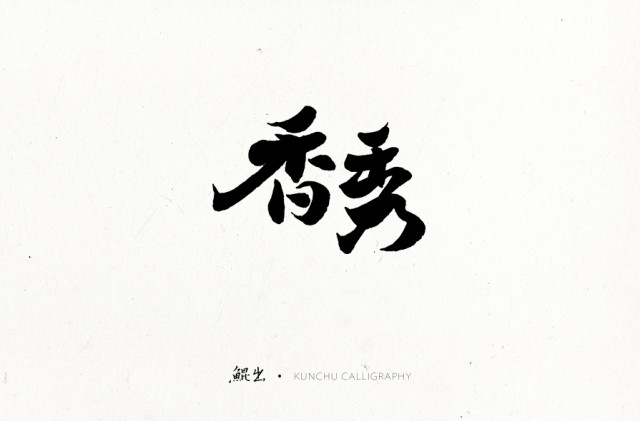 香秀
鲲出 • KUNCHU CALLIGRAPHY